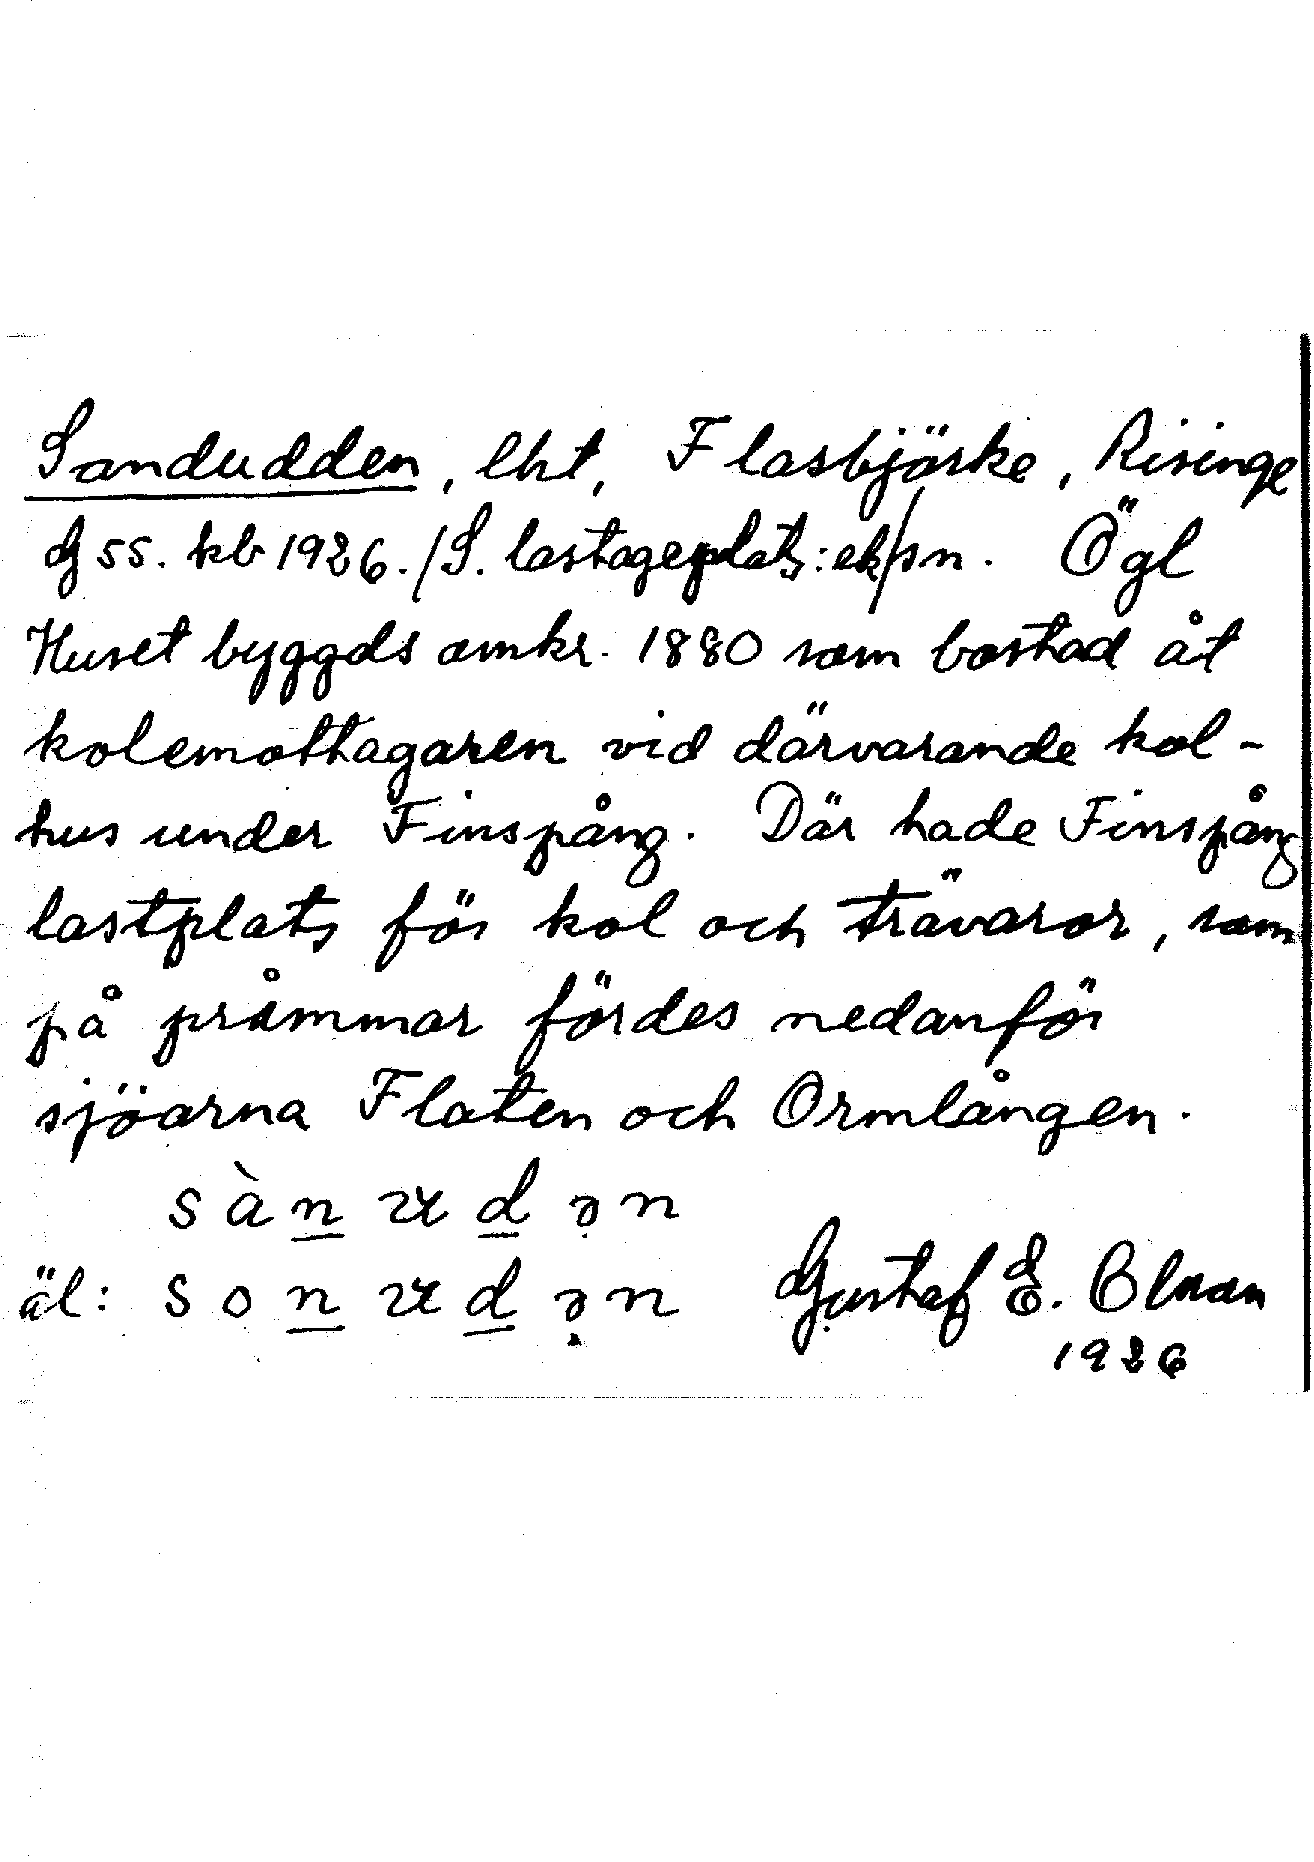 Sandudden, lht, Flasbjörke, Risinge
G 55. kb 1926./S. lastageplats: ek/sn. Ögl
Huset byggds omkr. 1880 som bostad åt
kolemottagaren vid därvarande kol-
hus under Finspång. Där hade Finspång
lastplats för kol och trävaror, som
på pråmmar fördes nedanför
sjöarna Flaten och Ormlången.
sàn̲ud̲ən
äl: son̲ud̲ən Gustaf E. Blman
1926